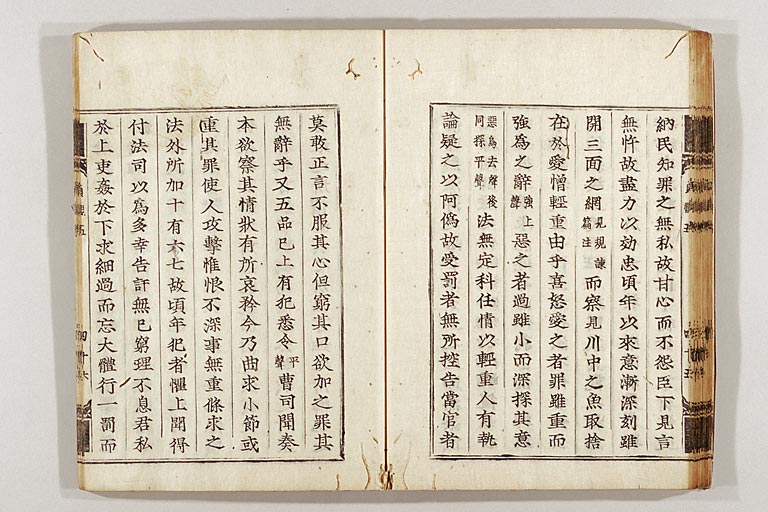 納民知罪之無私故甘心而不怨臣下見言
無忤故盡力以効忠頃年以來意漸深刻雖
開三面之網見規諫篇注而察見川中之魚取捨
在於愛憎輕重由乎喜怒愛之者罪雖重而
強為之辭強上聲惡之者過雖小而深探其意
惡烏去聲後同探平聲法無定科任情以輕重人有執
論疑之以阿僞故受罰者無所控告當官者
莫敢正言不服其心但窮其口欲加之罪其
無辭乎又五品已上有犯悉令平聲曹司聞奏
本欲察其情狀有所哀矜今乃曲求小節或
重其罪使人攻擊惟恨不深事無重條求之
法外所加十有六七故頃年犯者懼上聞得
付法司以為多幸告訐無已窮理不息君私
於上吏姦於下求細過而忘大體行一罰而